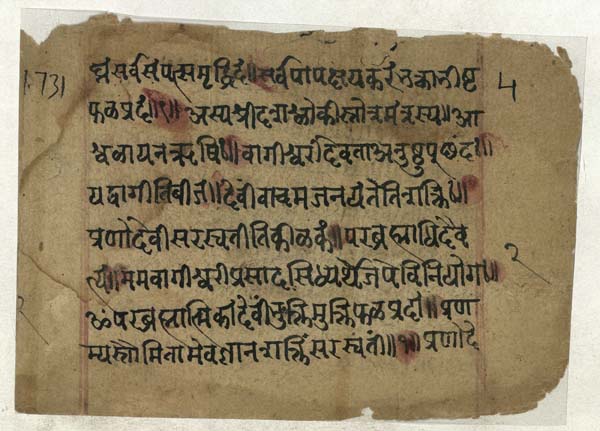 घ्नं सर्वसंपत्समृद्धिदं॥ सर्वपापक्षयकरं भुक्तानीष्ट
फलप्रदं॥१॥ अस्यश्रीदशश्लोकीस्तोत्रमंत्रस्य॥ आ
श्वळायनऋषिः॥ वागीश्वरीदेवता अनुष्टुप्छंदः॥
यद्वागीतिबीजं॥ देवींवाचमजनयंतेतिशक्तिः॥
प्रणोदेवीसरस्वतीतिकीळकं॥ परब्रह्माधिदैव
त्यं॥ ममवागीश्वरीप्रसादसिध्यर्थेजपेविनियोगः॥
ॐपरब्रह्मात्मिकांदेवींभुक्तिमुक्तिफळप्रदां॥ प्रण
म्यस्तौमितामेवज्ञानशक्तिंसरस्वतीं॥१॥ प्रणोदे
२
731
५
२